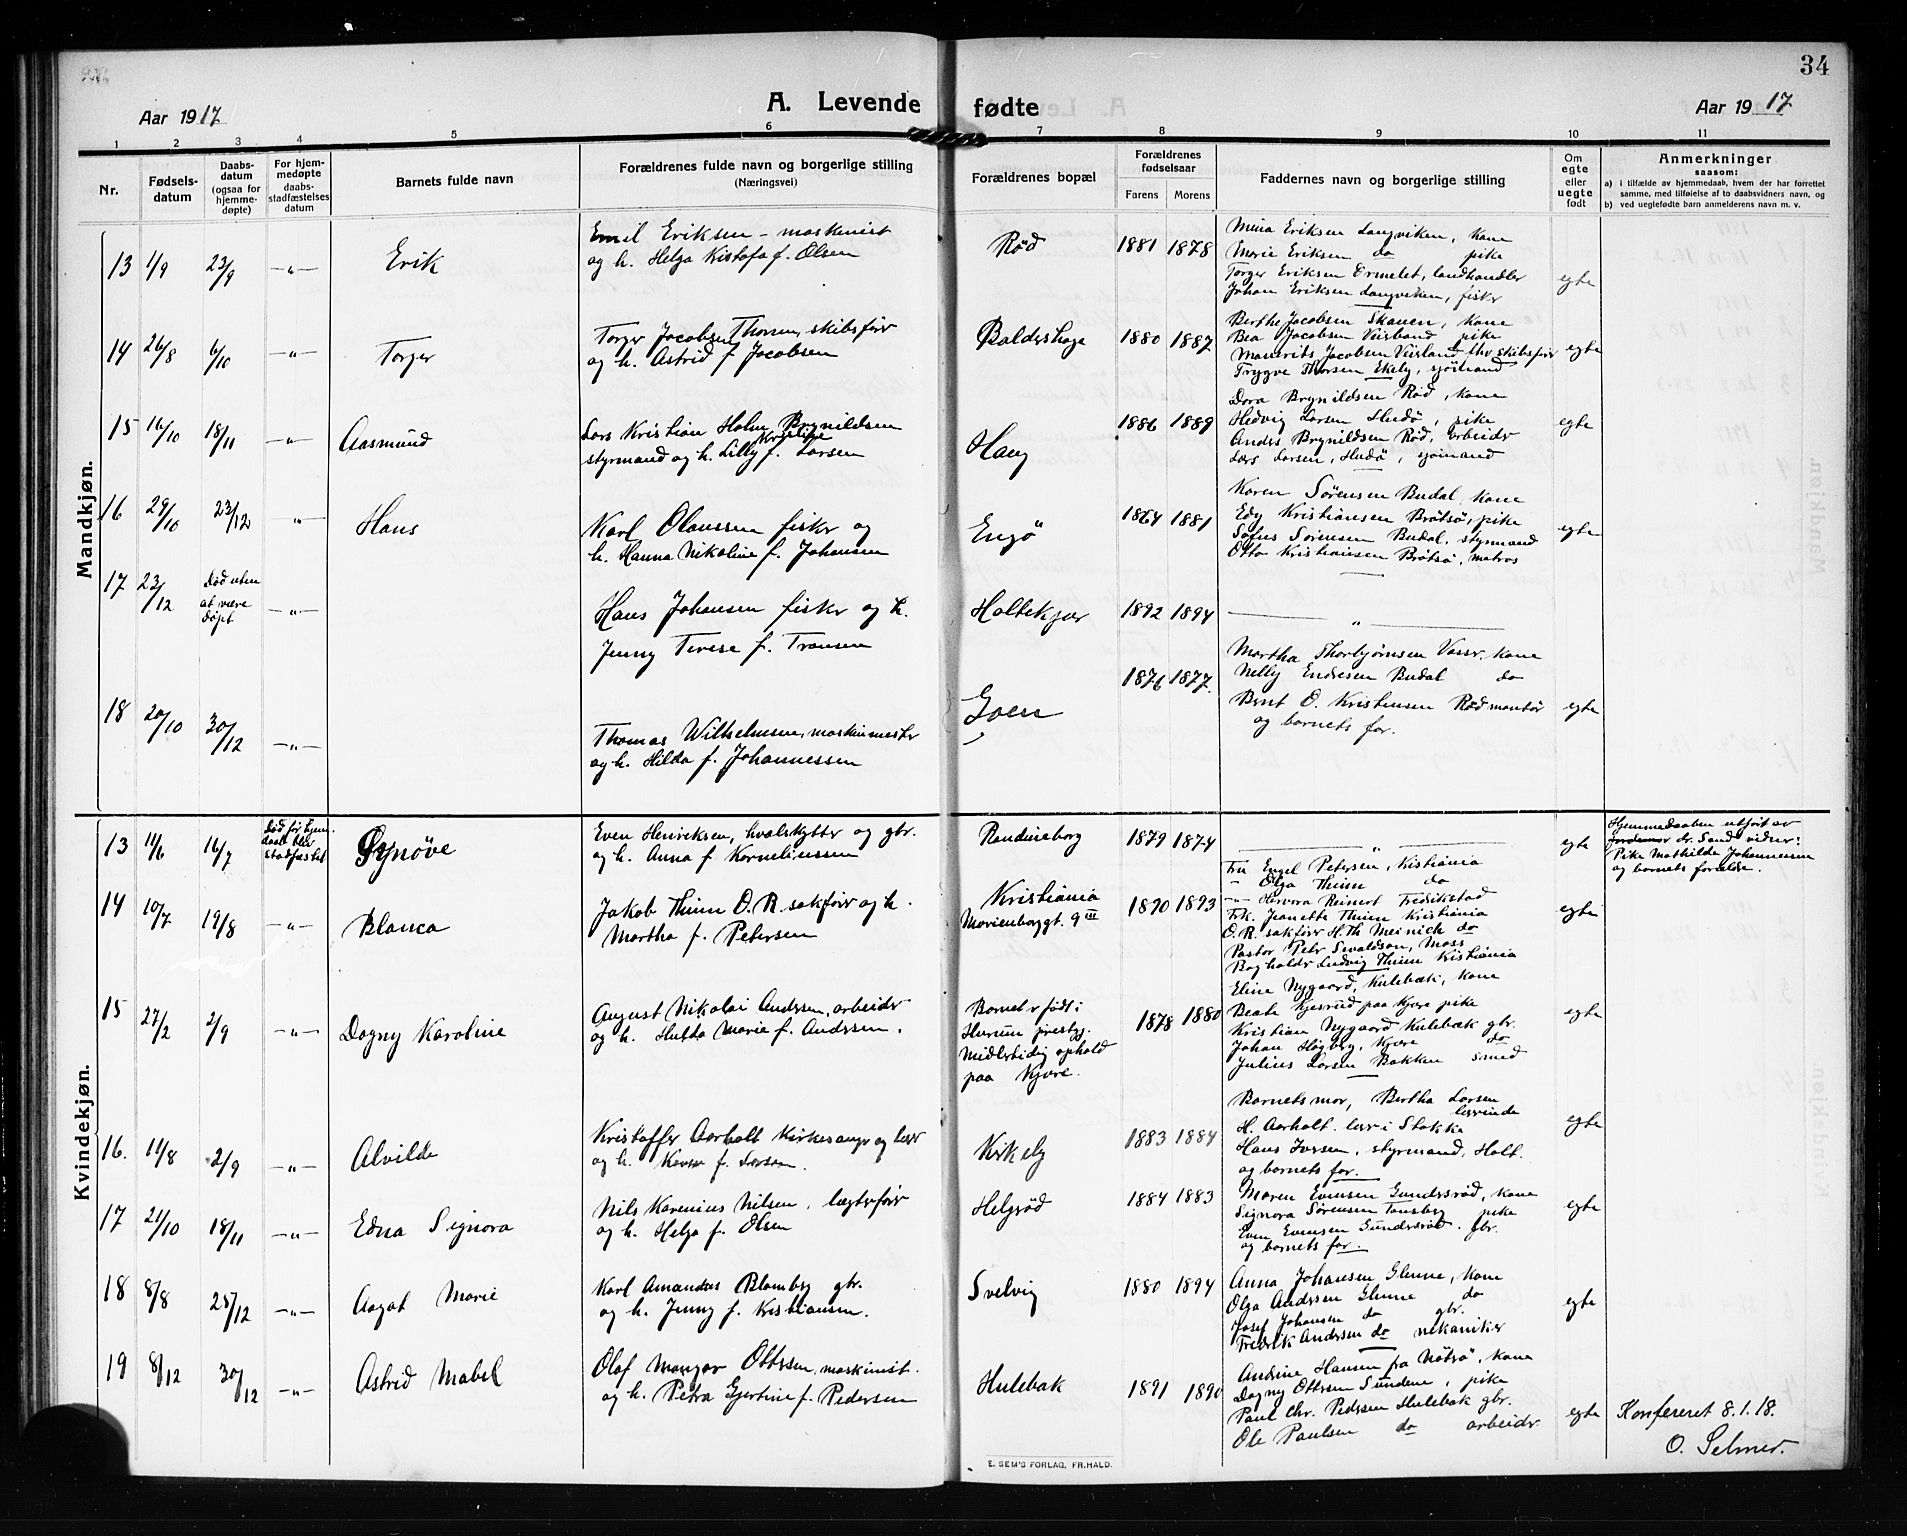 34
Aar 1917
A. Levende fødte
Aar 1917
1 2 3 4 5 6 7 8 9 10 11
Nr.
Fødselsdatum
Daabsdatum (ogsaa for hjemmedøpte)
For hjemmedøpte daabsstadfæstelses datum
Barnets fulde navn
Forældrenes fulde navn og borgerlige stilling (Næringsvei)
Forældrenes bopæl
Forældrenes fødselsaar
Farens Morens
Faddernes navn og borgerlige stilling
Om egte eller uegte født
Anmerkninger saasom:
a) i tilfælde av hjemmedaab, hvem der har forrettet samme, med tilføielse af to daabsvidners navn, og
b) ved uegtefødte barn anmelderens navn m. v.
Mandkjøn.
13 1/9 23/9 —„— Erik
Emil Eriksen – maskinist
og h. Helga Kistofa f. Olsen
Rød 1881 1878
Mina Eriksen Langviken, kone
Marie Eriksen do pike
Torger Eriksen Ormelet, landhandler
Johan Eriksen Langviken, fisker
egte
14 26/8 6/10 —„— Torger
Torger Jacobsen Thorsen, skibsfører
og h. Astrid f Jacobsen
Baldershage 1880 1887
Berthe Jacobsen Skauen, kone
Bea Jacobsen Veisland pike
Mauerits Jacobsen Veisland fhv skibsfører
Trygve Thorsen Ekely, sjømand
egte
15 16/10 18/11 —„— Aasmund
Lars Kristian Holm Brynildsen
styrmand og h. Lilly f. Larsen
Haug 1886 1889
Dora Brynildsen Rød, kone
Hedvig Larsen Hudø, pike
Anders Brynildsen Rød, arbeider
Lars Larsen, Hudø, sjømand
egte
16 29/10 23/12 —„— Hans
Karl Olaussen fisker og
h. Hanna Nikoline f. Johansen
Engø 1864 1881
Karen Sørensen Budal, kone
Edy Kristiansen Brøtsø, pike
Sofus Sørensen Budal, styrmand
Otto Kristiansen Brøtsø, matros
egte
17 23/12 Død uten at være døpt —„—
Hans Johansen fisker og h.
Jenny Terese f. Transen
Holtekjær 1892 1894
—„—
18 20/10 30/12 —„—
Thomas Wilhelmsen, maskinmester
og h. Hilda f. Johannessen
Goen 1876 1877
Martha Thorbjørnsen Vasser, kone
Nelly Endresen Budal do
Bernt O. Kristensen Rød montør
og barnets far.
egte
Kvindekjøn.
13 11/6 16/7 Død før hjem. daab blev stadfæstet Synøve
Even Henriksen, hvalskytter og gbr.
og h. Anna f Korneliussen
Randineborg 1879 1874
—„—
egte
Hjemmedaaben utført av
jordemor dr. Sand vidner:
Pike Mathilde Johannessen
og barnets forældre.
14 10/7 19/8 —„— Blanca
Jakob Thum O. R. sakfører og h.
Martha f. Petersen
Kristiania
Marienborggt. 9 III
1890 1893
Fru Engel Petersen, Kistiania
–„– Olga Thum do
–„– Hervora Reinert Fredrikstad
Frk. Jeanette Thum Kristiania
O. R. sakfører H. Th Meinich do
Pastor Peter Sevaldson, Moss
Bogholder Ludvig Thum Kristiania
egte
15 27/2 2/9 —„— Dagny Karoline
August Nikolai Andersen, arbeider
og h. Hulda Marie f. Andersen.
Barnet er født i
Hurum prestgj.
Midlertidig ophold
paa Kjøre.
1878 1880
Eline Nygaard, Kulebæk, kone
Beate Gjesrud paa Kjøre pike
Kristian Nygaard Kulebæk gbr.
Johan Høgberg, Kjøre do
Julius Larsen Bakken smed
egte
16. 11/8 2/9 —„— Alvilde
Kristoffer Aarholt kirkesanger og lærer
og h. Karen f. Larsen.
Kirkely 1883 1884
Barnets mor, Bertha Larsen
lærerinde
H. Aarholt. lærer i Stokke
Hans Iversen, styrmand, Holt.
og barnets far.
egte
17 21/10 18/11 —„— Edna Signora
Nils Karenius Nilsen, lægterfører
og h. Helga f. Olsen
Helgerød 1884 1883
Maren Evensen Gundersrød, kone
Signora Sørensen Tønsberg pike
Even Evensen Gundersrød. gbr.
og barnets far.
egte
18 8/8 25/12 —„— Aagot Marie
Karl Amandus Blomberg gbr.
og h. Jenny f. Kristiansen.
Svelvig 1880 1894
Anna Johansen Glenne, kone
Olga Andersen Glenne do
Josef Johansen do gbr.
Fredrik Andersen do mekaniker
egte
19 8/12 30/12 —„— Astrid Mabel
Olaf Mangor Ottersen, maskinist.
og h. Petra Gjertine f. Pedersen
Hulebak 1891 1890
Andine Hansen fra Nøtsø, kone
Dagny Ottersen Sundene, pike
Paul Chr. Pedersen Hulebak gbr.
Ole Paulsen do arbeider
egte
Konfereret 8.1.18.
O. Selmer.
E. SEM'S FORLAG, FR.HALD.